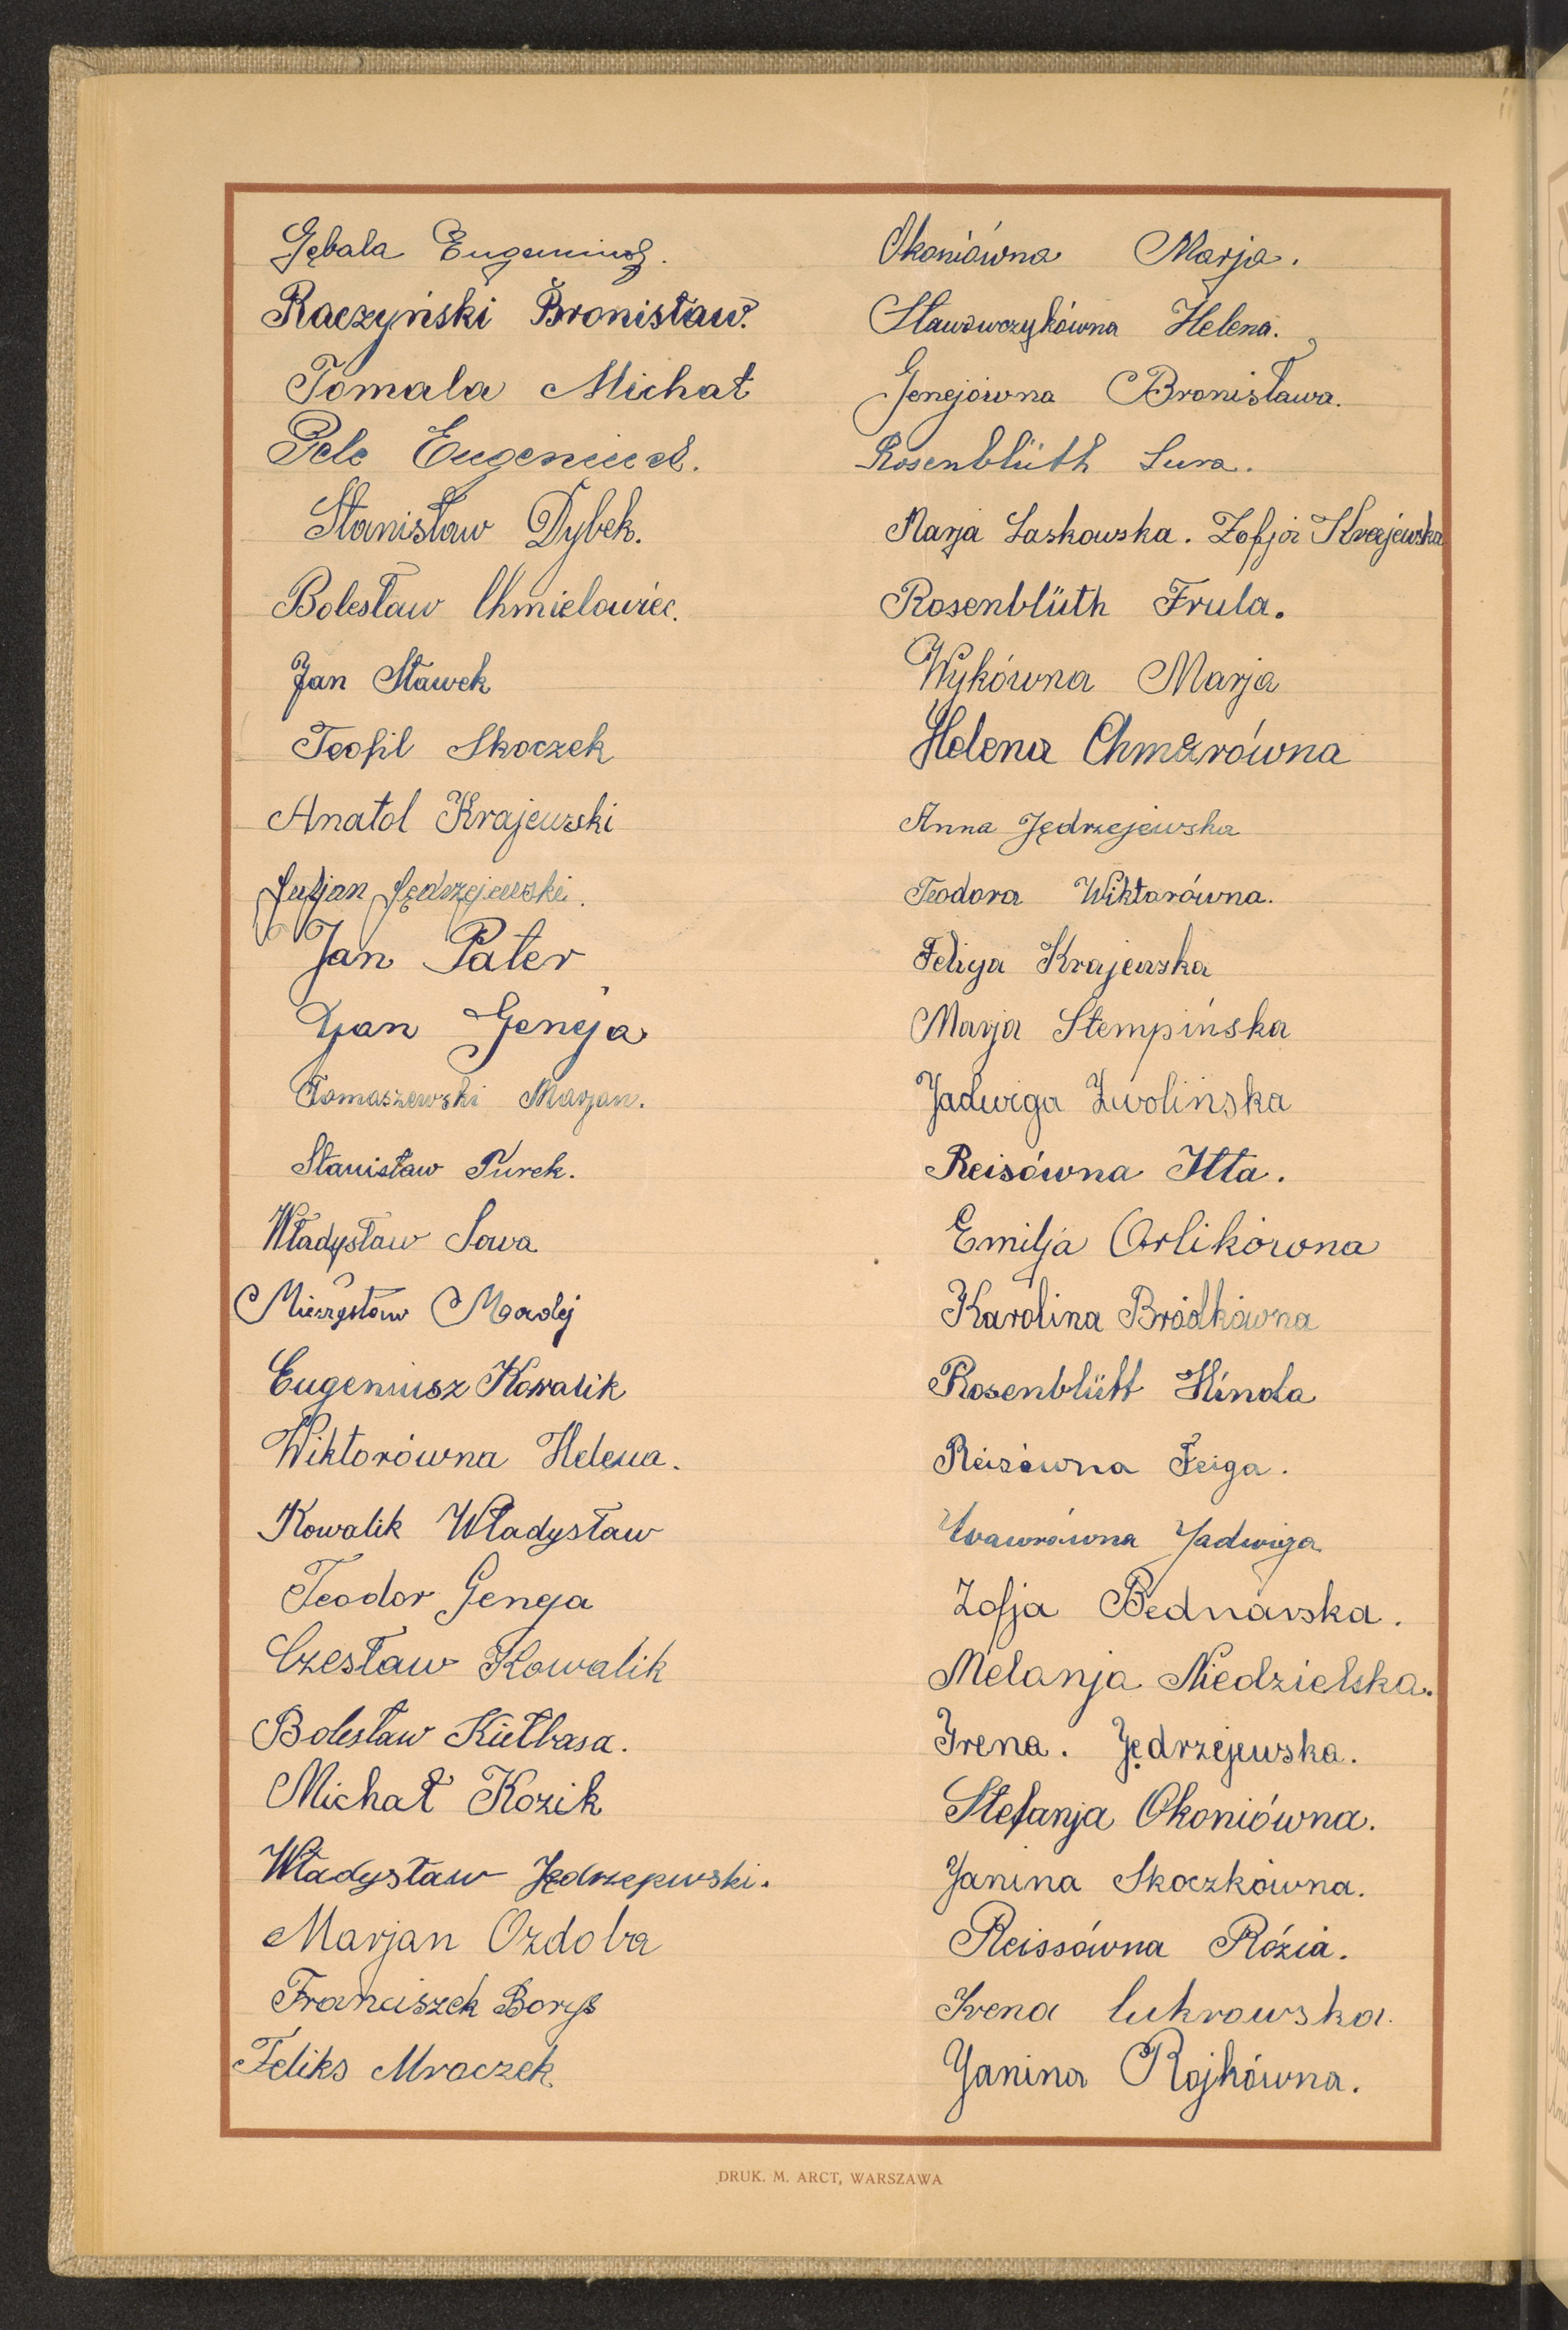 Gębala Eugeniusz.
Raczyński Bronisław.
Tomala Michał
Pelc Eugeniusz.
Stanisław Dybek.
Bolesław Chmielowiec.
Jan Sławek
Teofil Skoczek
Anatol Krajewski
Julian Jędrzejewski.
Jan Pater
Jan Geneja
Tomaszewski Marjan.
Stanisław Turek.
Władysław Sowa
Mieczysław Madej
Eugeniusz Kowalik
Wiktorówna Helena.
Kowalik Władysław
Teodor Geneja
Czesław Kowalik
Bolesław Kiełbasa.
Michał Kozik
Władysław Jędrzejewski.
Marjan Ozdoba
Franciszek Borys
Feliks Mroczek
Okoniówna Marja.
Helena.
Genejówna Bronisława.
Rosenblüth Sura.
Marja Laskowska. Zofja Krajewska
Rosenblüth Frula.
Wykówna Marja
Helena Chmarówna
Anna Jędrzejewska
Teodora Wiktorówna.
Felicja Krajewska
Marja Stempińska
Jadwiga Zwolińska
Reisówna Itta.
Emilja Orlikówna
Karolina Bródkówna
Rosenblütt Hinda
Reisówna Feiga.
Wawrówna Jadwiga
Zofja Bednarska.
Melanja Niedzielska.
Irena. Jędrzejewska.
Stefanja Okoniówna.
Janina Skoczkówna.
Reissówna Rózia.
Irena Cukrowska.
Janina Rojkówna.
DRUK. M. ARCT, WARSZAWA